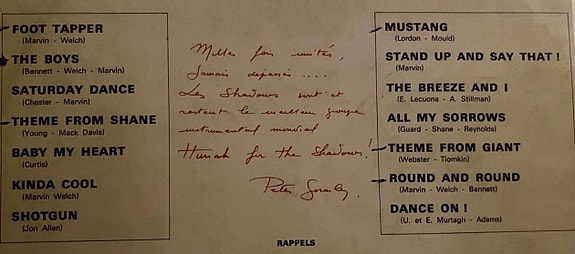 FOOT TAPPER
(Marvin - Welch)
THE BOYS
(Bennett - Welch - Marvin)
SATURDAY DANCE
(Chester - Marvin)
THEME FROM SHANE
(Young - Mack Davis)
BABY MY HEART
(Curtis)
KINDA COOL
(Marvin Welch)
SHOTGUN
(Jon Allen)
Milles fois imités,
Jamais dépassés ....
Les Shadows sont et
restent le meilleur groupe
instrumental mondial
Hurrah for the Shadows!
Peter
MUSTANG
(Lordan - Mould)
STAND UP AND SAY THAT !
(Marvin)
THE BREEZE AND I
(E. Lecuona - A. Stillman)
ALL MY SORROWS
(Guard - Shane - Reynolds)
THEME FROM GIANT
(Webster - Tiomkin)
ROUND AND ROUND
(Marvin - Welch - Bennett)
DANCE ON !
(U. et E. Murtagh - Adams)
RAPPELS